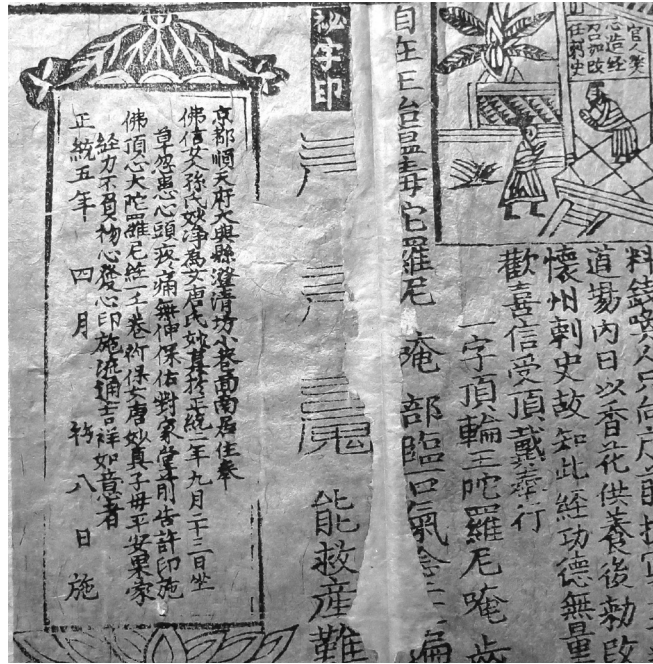 官人發
心造經
呂却改
任刺史
料錢喚人只向
道場內日以香花供養後勅改
懷州刺史故知此經功德無量
歡喜信受頂戴奉行
一字頂輪王陀羅尼唵齒
自在王治瘟毒陀羅尼唵部臨
祕字印
能救產難
京都順天府大興縣澄清坊小巷面南居住奉
佛信女孫氏妙淨為女唐氏妙真於正統二年九月二十三日坐
草忽患心頭疼痛無伸保佑對家堂前告許印施
佛頂心大陀羅尼經壹卷祈保女唐妙真子母平安果蒙
經力不負初心發心印施流通吉祥如意者
正統五年四月初八日施